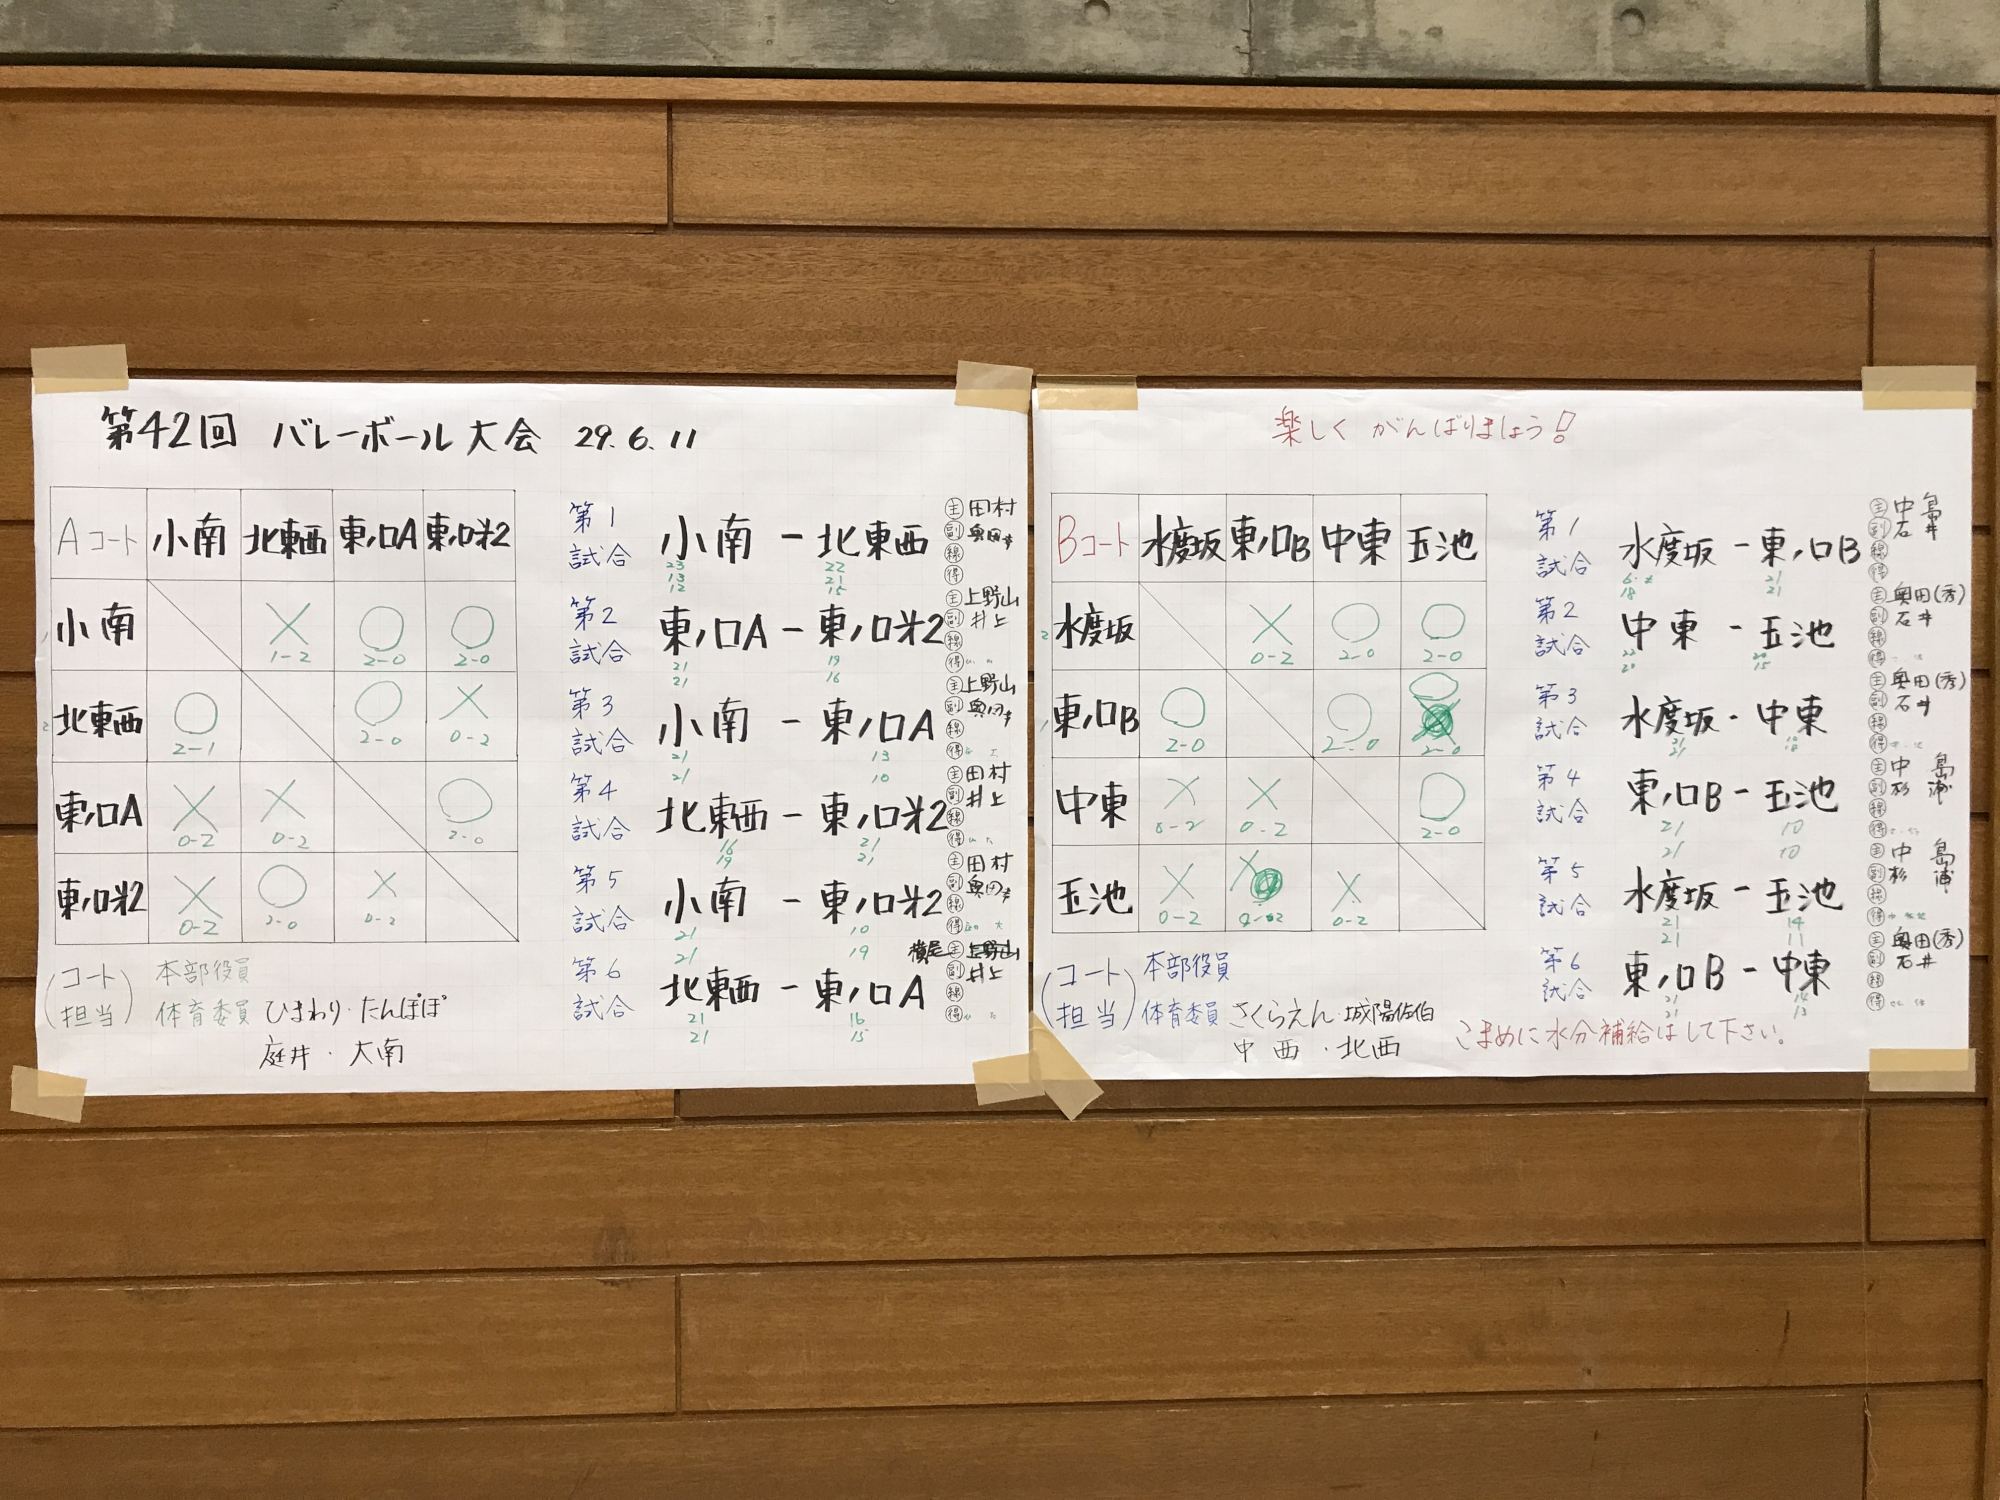 第42回 バレーボール大会 29.6.11
Aコート 小南 北東西 東ノ口A 東ノ口米2
小南 × ○ ○
1-2 2-0 2-0
北東西 ○ ○ ×
2-1 2-0 0-2
東ノ口A × × ○
0-2 0-2 2-0
東ノ口米2 × ○ ×
0-2 2-0 0-2
(コート担当)
本部役員
体育委員 ひまわり・たんぽぽ
庭井・大南
第1試合 小南 - 北東西
23 22
13 21
12 15
主 田村
副 奥田幸
線
得
第2試合 東ノ口A - 東ノ口米2
21 19
21 16
主 上野山
副 井上
線
得
第3試合 小南 - 東ノ口A
21 13
21 10
主 上野山
副 奥田幸
線
得
第4試合 北東西 - 東ノ口米2
16 21
19 21
主 田村
副 井上
線
得
第5試合 小南 - 東ノ口米2
21 10
21 19
主 田村
副 奥田幸
線
得
第6試合 北東西 - 東ノ口A
21 16
21 15
主 上野山
副 井上
線
得
楽しく がんばりましょう!
Bコート 水度坂 東ノ口B 中東 玉池
水度坂 × ○ ○
0-2 2-0 2-0
東ノ口B ○ ○ ○
2-0 2-0 2-0
中東 × × ○
0-2 0-2 2-0
玉池 × × ×
0-2 0-2 0-2
(コート担当)
本部役員
体育委員 さくらえん・城陽佐伯
中西・北西
第1試合 水度坂 - 東ノ口B
21
18 21
主 中島
副 石井
線
得
第2試合 中東 - 玉池
22 20
15
主 奥田(秀)
副 石井
線
得
第3試合 水度坂 - 中東
21
21 18
主 奥田(秀)
副 石井
線
得
第4試合 東ノ口B - 玉池
21 10
21 10
主 中島
副 杉浦
線
得
第5試合 水度坂 - 玉池
21 14
21 11
主 中島
副 杉浦
線
得
第6試合 東ノ口B - 中東
21
21 13
主 奥田(秀)
副 石井
線
得
こまめに水分補給はして下さい。